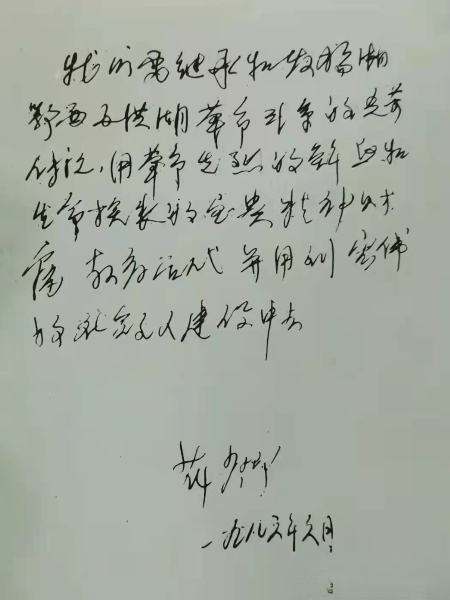 我们需继承和发扬湘
鄂西及洪湖革命斗争的光荣
传统，用革命先烈的鲜血和
生命换来的宝贵精神财
富 教育后代 并用到宏伟
的社会主义建设中去
薛
一九八三年六月